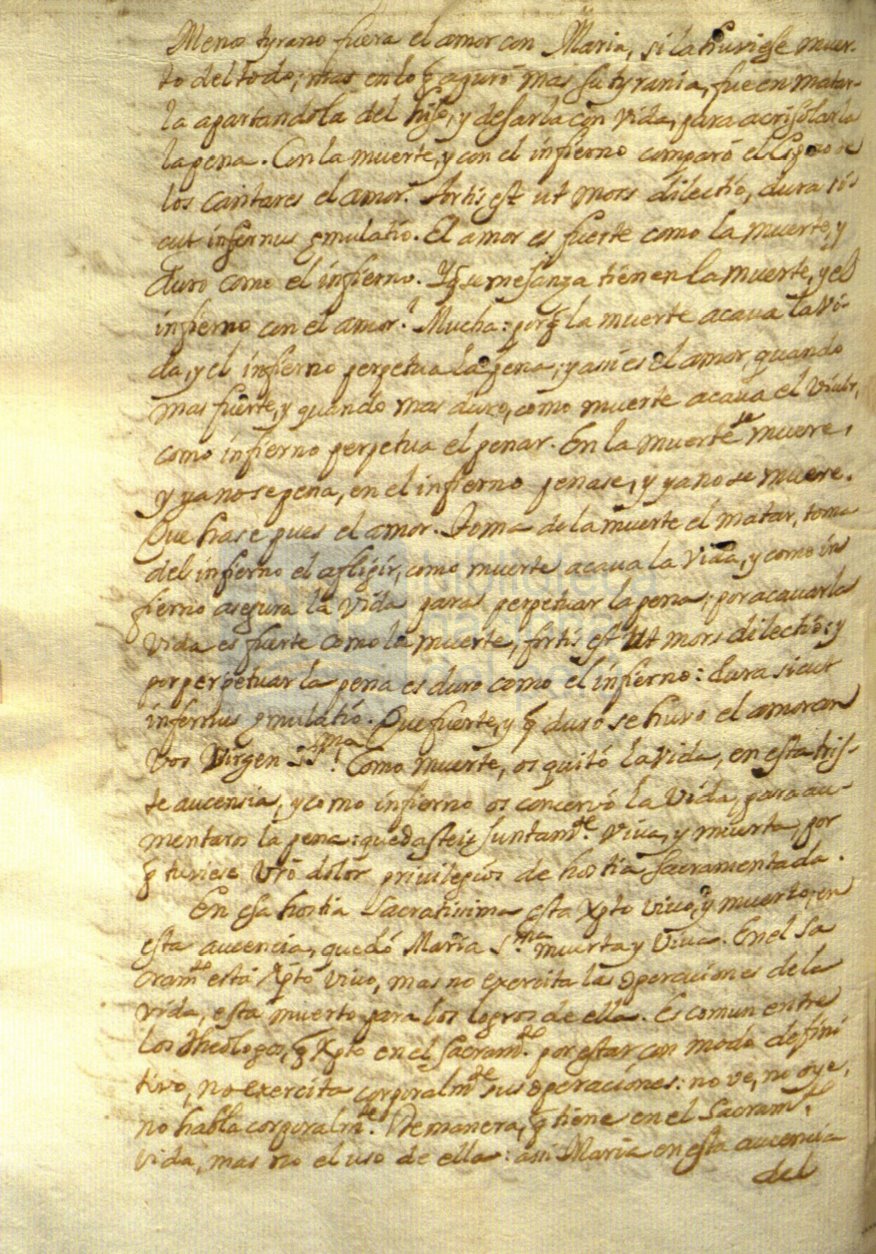 Menos tyrano fuera el amor con Maria, si la huviese muer-
to del todo; mas en lo q̃ apuró mas su tyrania, fue en matar-
la apartandola del hijo, y dejarla con vida, para acrisolarla
la pena. Con la muerte, y con el infierno comparó el Esposo de
los cantares el amor. Fortis est ut mors dilectio, dura si-
cut infernus ęmulatio. El amor es fuerte como la muerte, y
duro como el infierno. Y q̃ semejanza tienen la muerte, y el
infierno con el amor? Mucha: porq̃ la muerte acava la vi-
da, y el infierno perpetua la pena; y asi es el amor, quando
mas fuerte, y quando mas duro, como muerte acava el vivir,
como infierno perpetua el penar. En la muerte se muere,
y ya no se pena, en el infierno penase, y ya no se muere.
Que hase pues el amor. Toma de la muerte el matar, toma
del infierno el afligir, como muerte acava la vida, y como in
fierno asegura la vida para perpetuar la pena; por acavar la
vida es fuerte como la muerte, fortis est ut mors dilectio; y
por perpetuar la pena es duro como el infierno: dura sicut
infernus ęmulatio. Que fuerte, y q̃ duro se huvo el amor con
vos Virgen SSma! Como muerte, os quitó la vida, en esta tris-
te aucensia, y como infierno os concervó la vida, para au-
mentaros la pena: quedasteis juntamte. viva, y muerta, por
q̃ tuviese vrõ dolor privilegios de hostia sacramentada.
En esa hostia sacratissima esta Xpto vivo, y muerto; en
esta aucencia, quedó Maria Sma muerta y viva. En el Sa
cramto está Xpto vivo, mas no exercita las operaciones de la
vida, esta muerto para los logros de ella. Es comun entre
los Theologos, q̃ Xpto en el Sacramto. por estar con modo defini
tivo, no exercita corporalmte sus operaciones: no ve, no oye,
no habla corporalmte. De manera, q̃ tiene en el Sacramto.
vida, mas no el uso de ella: asi Maria en esta aucencia
del
biblioteca
nacional
del perú